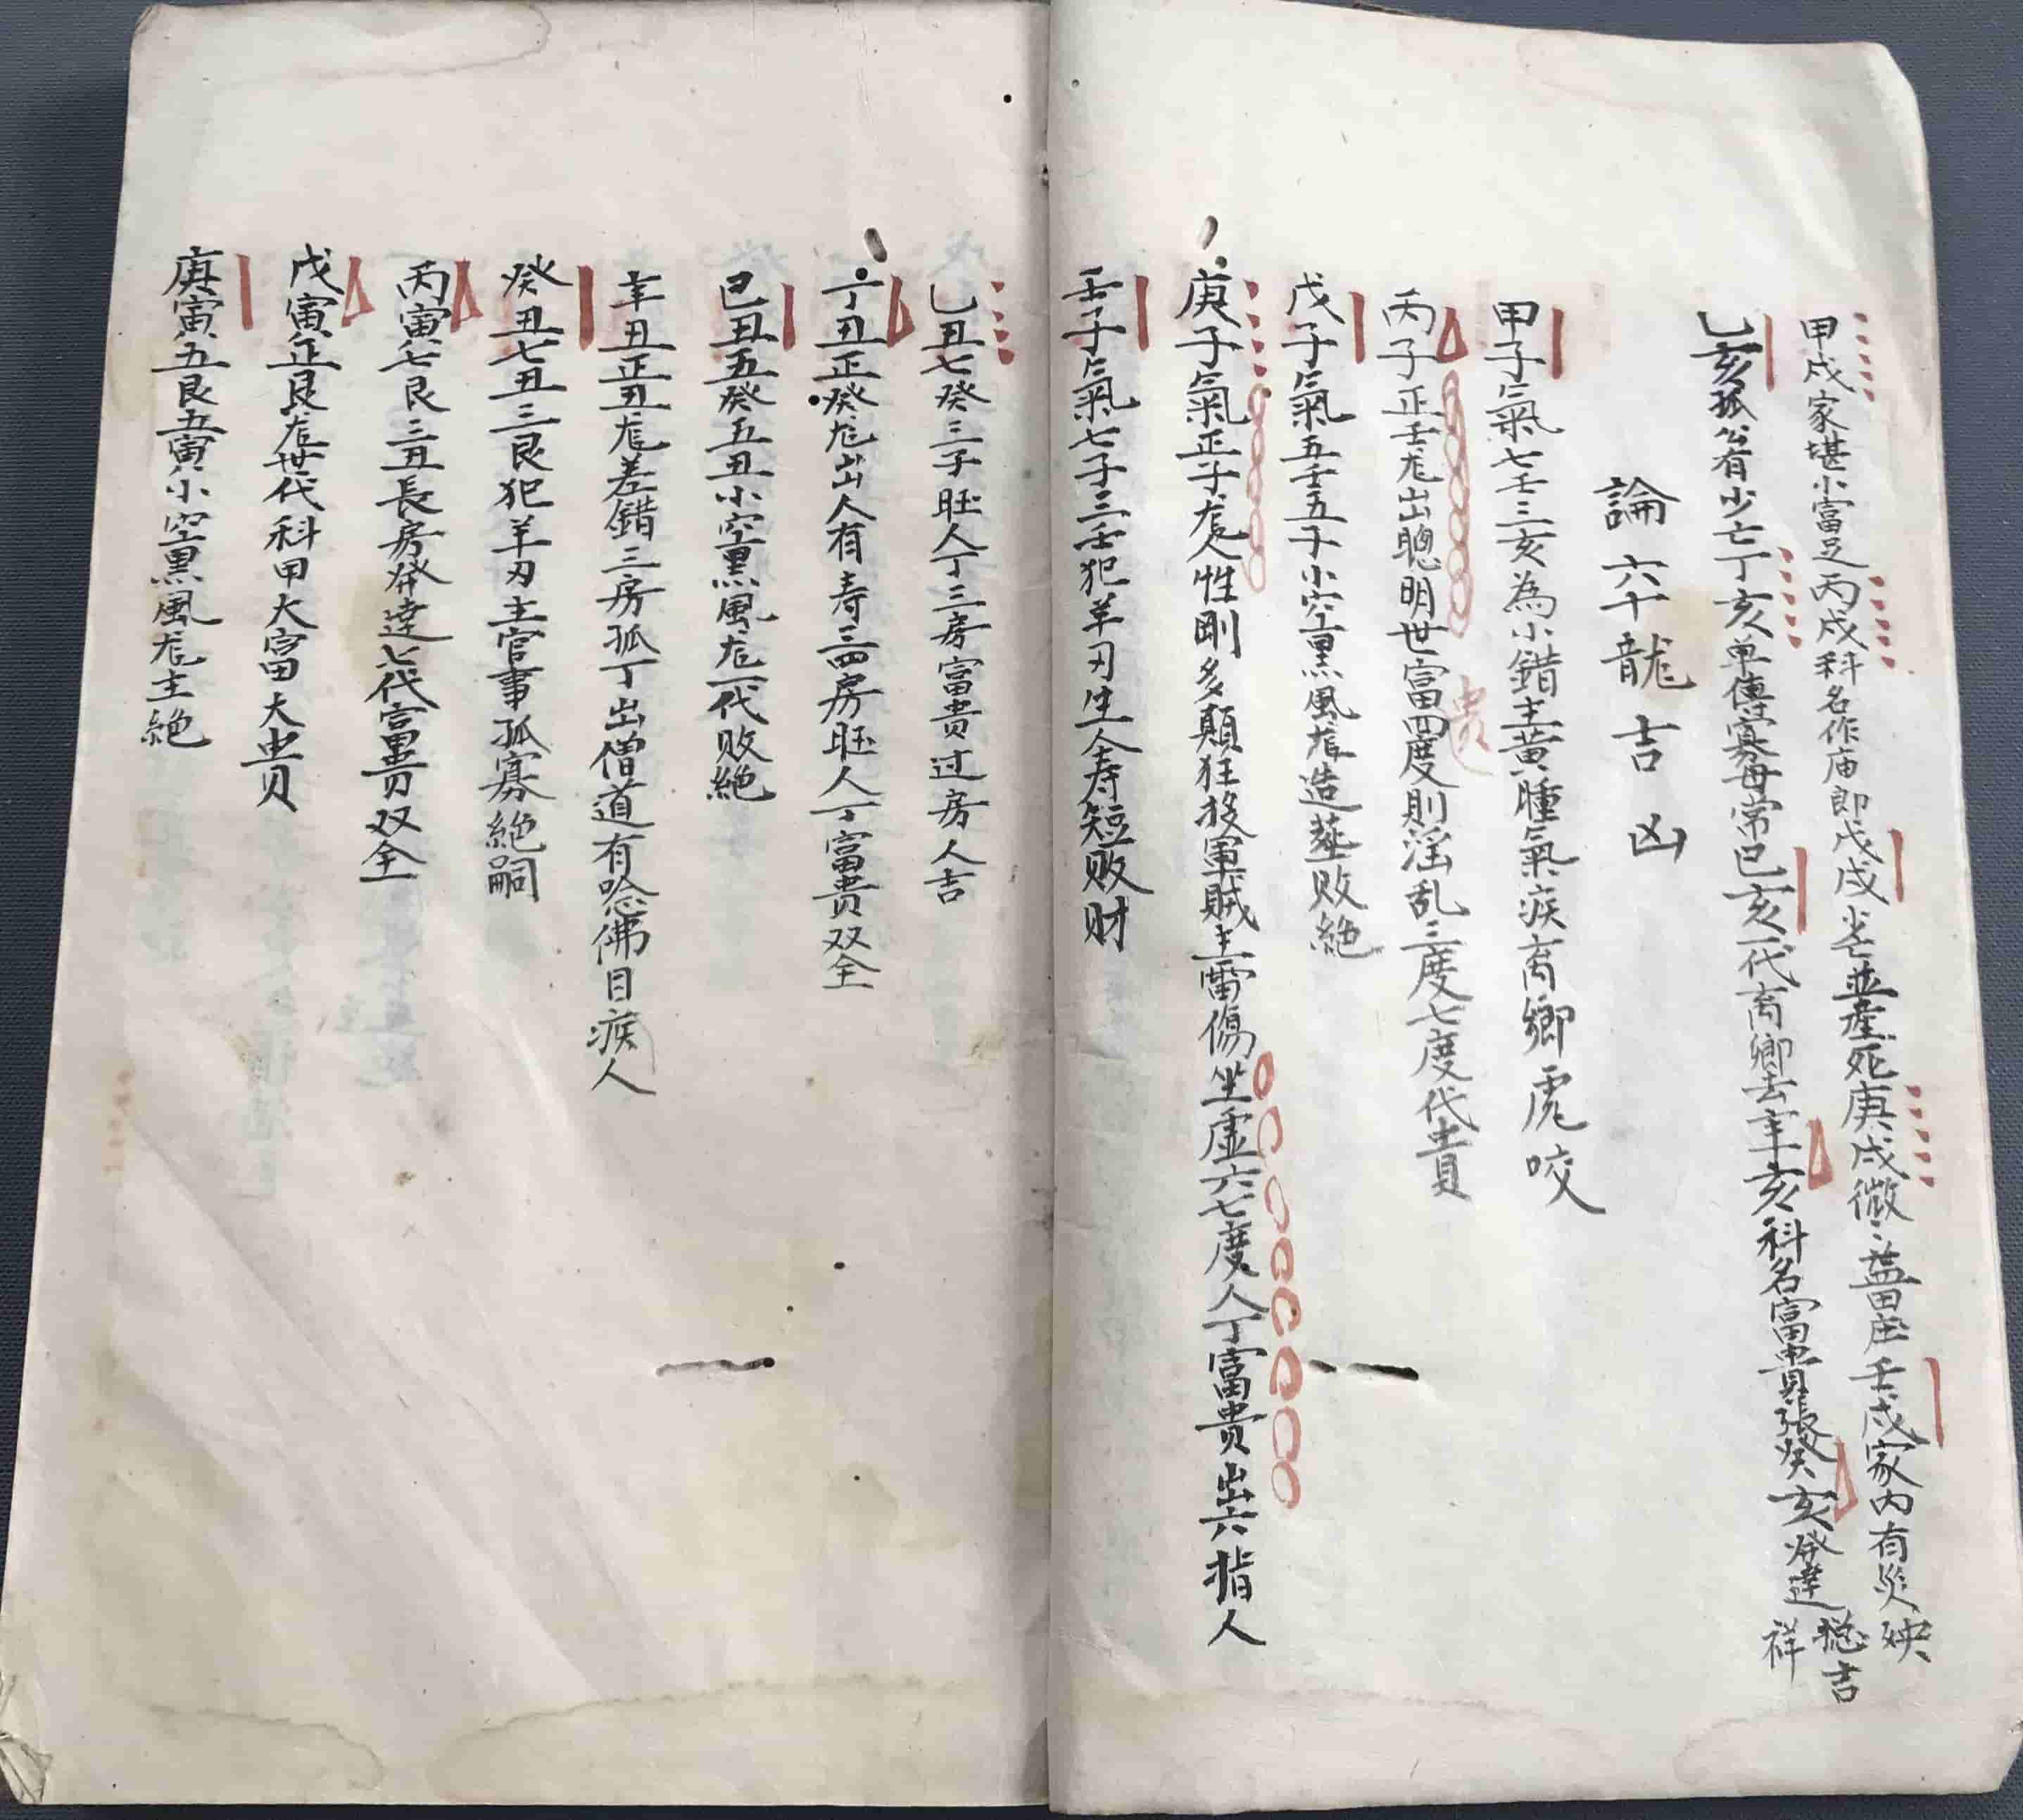 甲戌家堪小富足丙戌科名作庙即戊戌少亡並產死庚戌微々益田庄壬戌家内有災殃
乙亥孤翁有少亡丁亥单傳寡母常己亥一代离鄉去辛亥科名富貴張癸亥發達总吉祥
論六十龍吉凶
甲子氣七壬三亥為小錯主黄腫氣疾离鄉虎咬
丙子正壬龙出聰明世富四度則淫乱三度七度代貴
貴
戊子氣五壬五子小空黑風龙造塟敗絕
庚子氣正子龙人性剛多顛狂投軍賊主雷傷坐虚六七度人丁富貴出六指人
壬子氣七子三壬犯羊刃生人寿短败财
乙丑七癸三子旺人丁三房富貴过房人吉
丁丑正癸龙出人有寿三四房旺人丁富貴双全
己丑五癸五丑小空黑風龙一代敗絕
辛丑正丑龙差錯三房孤丁出僧道有唸佛目疾人
癸丑七丑三艮犯羊刃主官事孤寡絕嗣
丙寅七艮三丑長房發達七代富貴双全
戊寅正艮龙世代科甲大富大貴
庚寅五艮五寅小空黑風龙主絕